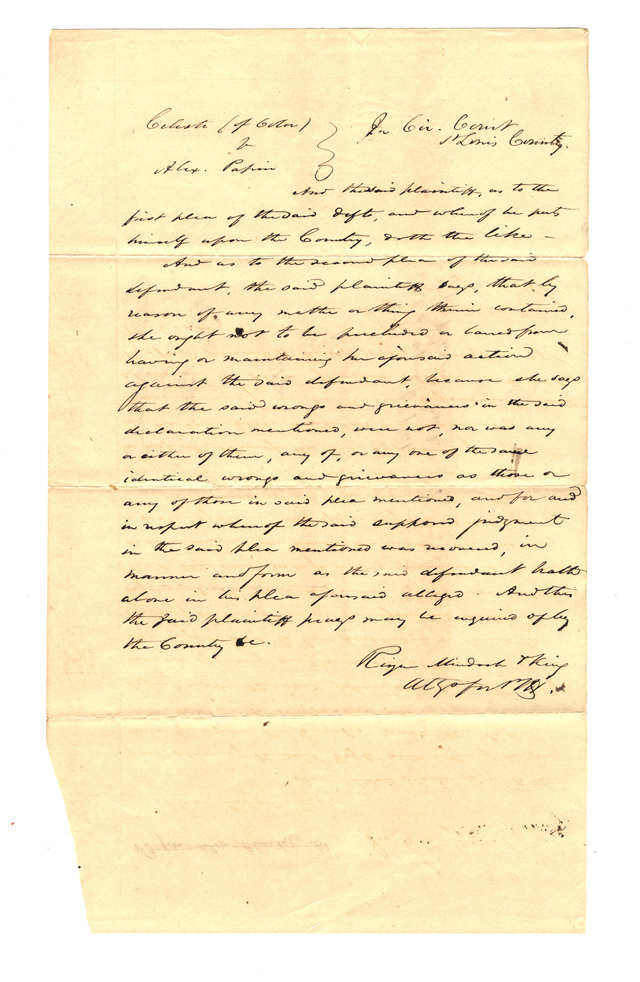 Celeste (of Color)
v
Alex. Papin
In Cir. Court
St Louis County.
And the said plaintiff, as to the
first plea of the said deft, and whereof he puts
himself upon the Country, doth the like –
And as to the second plea of the said
defendant, the said plaintiff says, that by
reason of any matter or thing therein contained,
she ought not to be precluded or barred from
having or maintaining her aforesaid action
against the said defendant, because she says
that the said wrongs and grievances in the said
declaration mentioned, were not, nor was any
or either of them, any of, or any one of the same
identical wrongs and grievances as those or
any of those in said plea mentioned, and for and
in respect whereof the said supposed judgment
in the said plea mentioned was recovered, in
manner and form as the said defendant hath
above in his plea aforesaid alleged. And this
the said plaintiff prays may be enquired of by
the Country &c.
Murdoch & King
Attys for Plff.